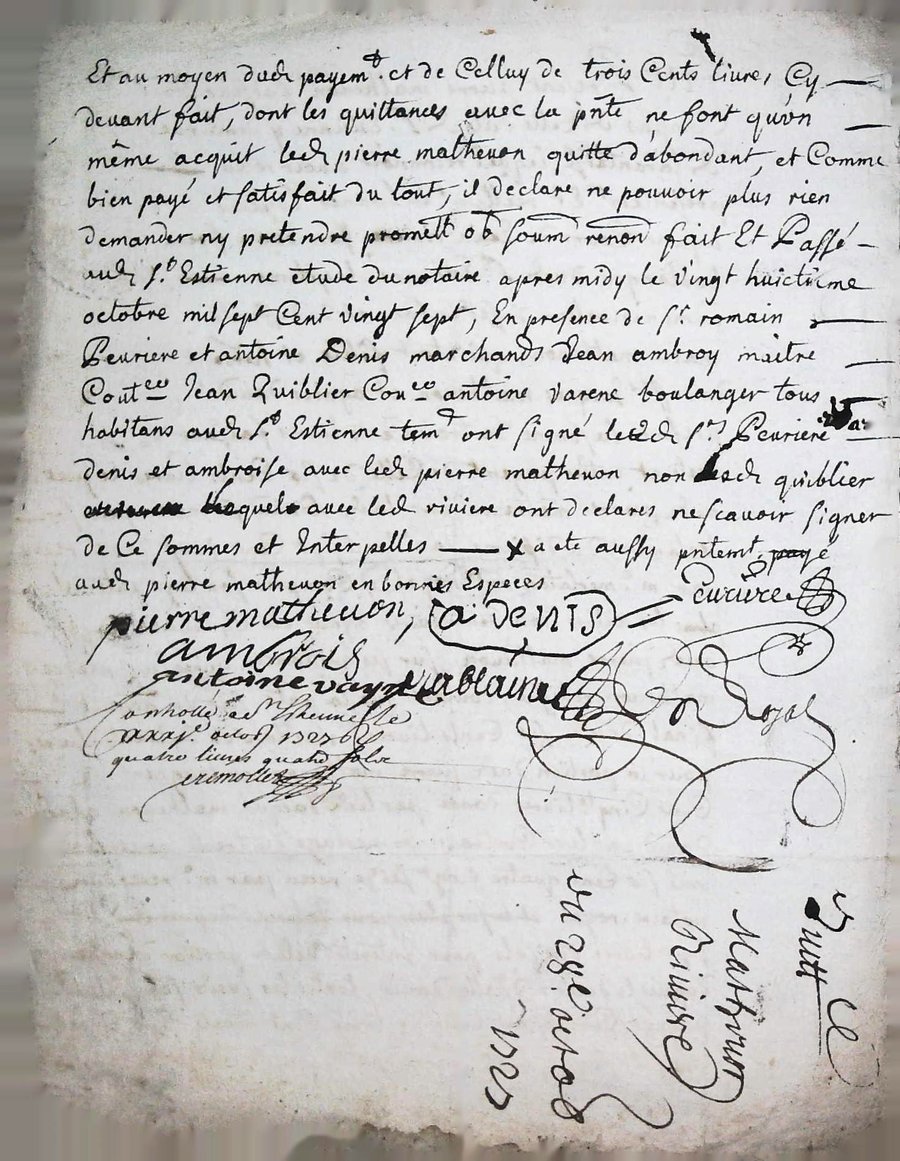 Et au moyen dud payem.t et de Celluy de trois Cents livres Cy
devant fait, dont les quittances avec la pnte ne font qu'vn
même acquit led pierre matheuon quitte d'abondant, et Comme
bien payé et satisfait du tout, il declare ne pouvoir plus rien
demander ny pretendre promett ob soum renon fait Et Passé
aud S.t Estienne etude du notaire apres midy le vingt huictieme
octobre mil sept Cent vingt sept, En presence de S.r romain
Peuriere et antoine Denis marchands Jean ambroy maitre
Cout.eo Jean Quiblier Cou.eo antoine varene boulanger tous
habitans aud S.t Estienne tem. ont signé lesd S.rs Peuriere
denis et ambroise avec led pierre matheuon non led quiblier
lequel avec led riviere ont declares ne scavoir signer
de Ce sommes et Interpelles x a ete aussy pntemt. paye
aud pierre matheuon en bonnes Especes
pierre matheuon, a denis Peurière
ambrois
antoine
Controllé a S.t Estienne le
xxxj.e octob 1727
quatre livres quatre solz
du 28.e octob
1727
Mathieu
Riviere
Quitt.ce